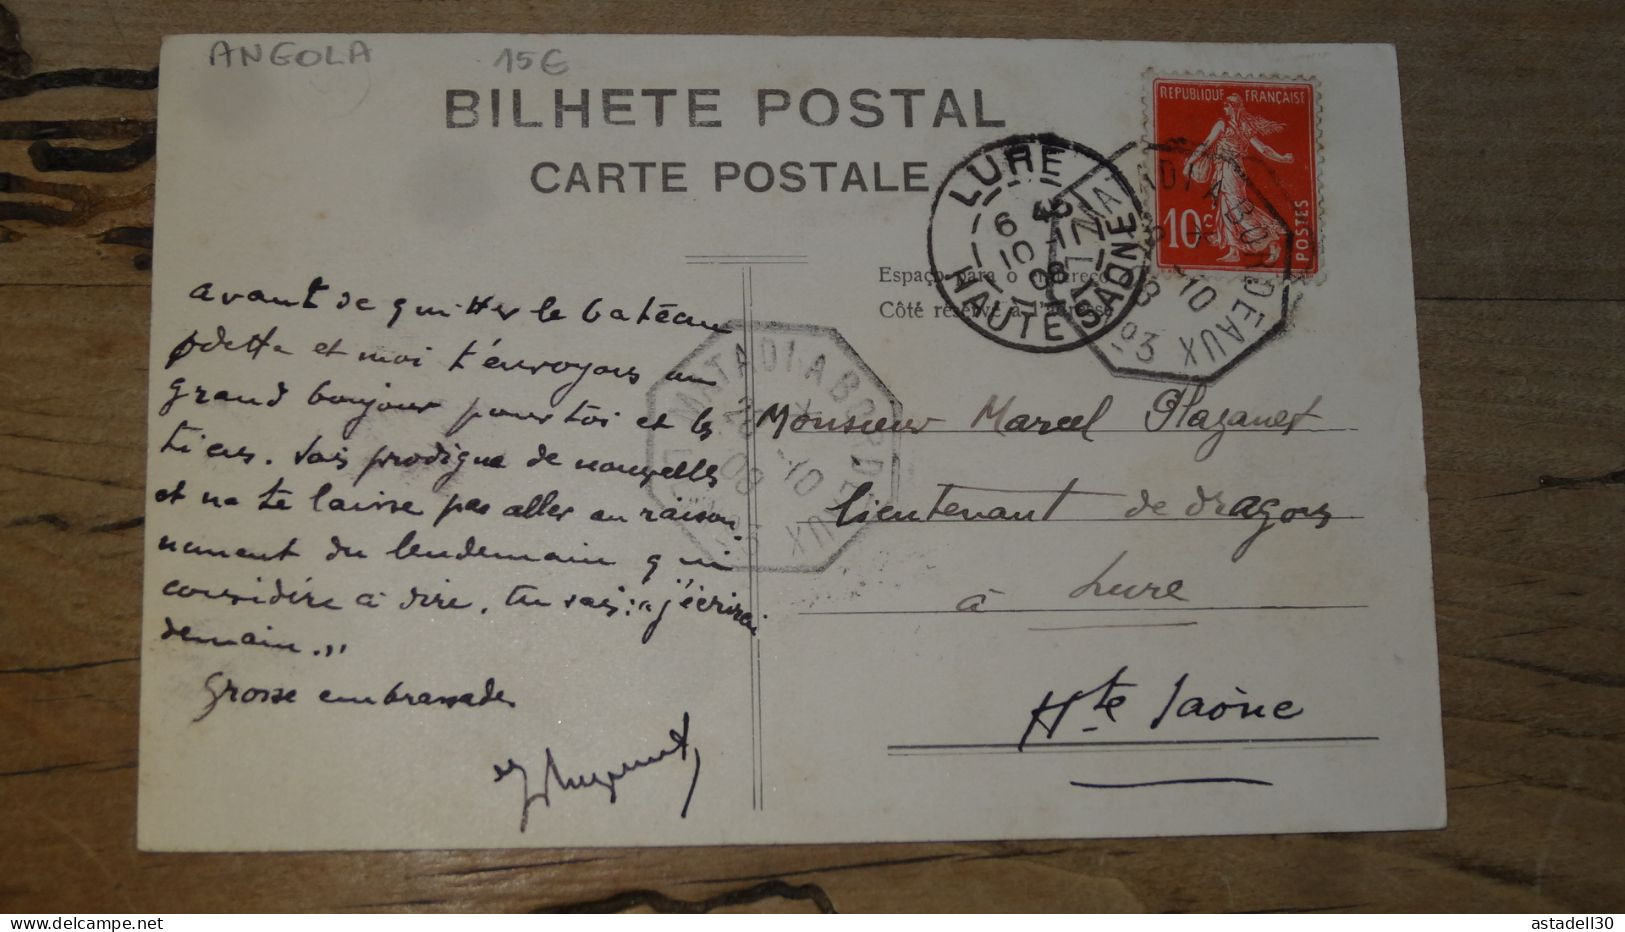 ANGOLA 15€
BILHETE POSTAL
CARTE POSTALE
REPUBLIQUE FRANÇAISE
10c POSTES
LURE
6 45
10 -11
08
HAUTE SAONE
MATADI A BORDEAUX
10
L.L. Nº3
Espaço para o endereço
Côté réservé à l'adresse
avant de quitter le bateau
Odette et moi t'envoyons un
grand bonjour pour toi et les
tiens. Sois prodigue de nouvelles
et ne te laisse pas aller au raison
nement du lendemain qui
considère à dire, tu sais : "j'écrirai
demain."
Grosse embrassade
MATADI A BORDEAUX
10
08
Monsieur Marcel
lieutenant de dragons
à Lure
Hte Saône
astadell30